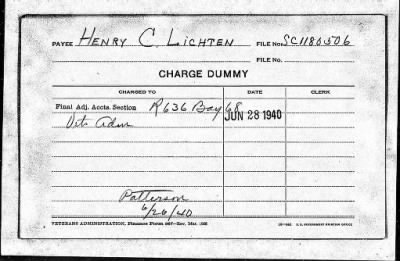 PAYEE HENRY C. LICHTEN FILE NO. SC1180506
FILE NO.
CHARGE DUMMY
CHARGED TO DATE CLERK
Final Adj. Accts. Section R636 Bay 68 JUN 28 1940
Vets Adm
Patterson
6/26/40
VETERANS ADMINISTRATION, Finance Form
U. S. GOVERNMENT PRINTING OFFICE